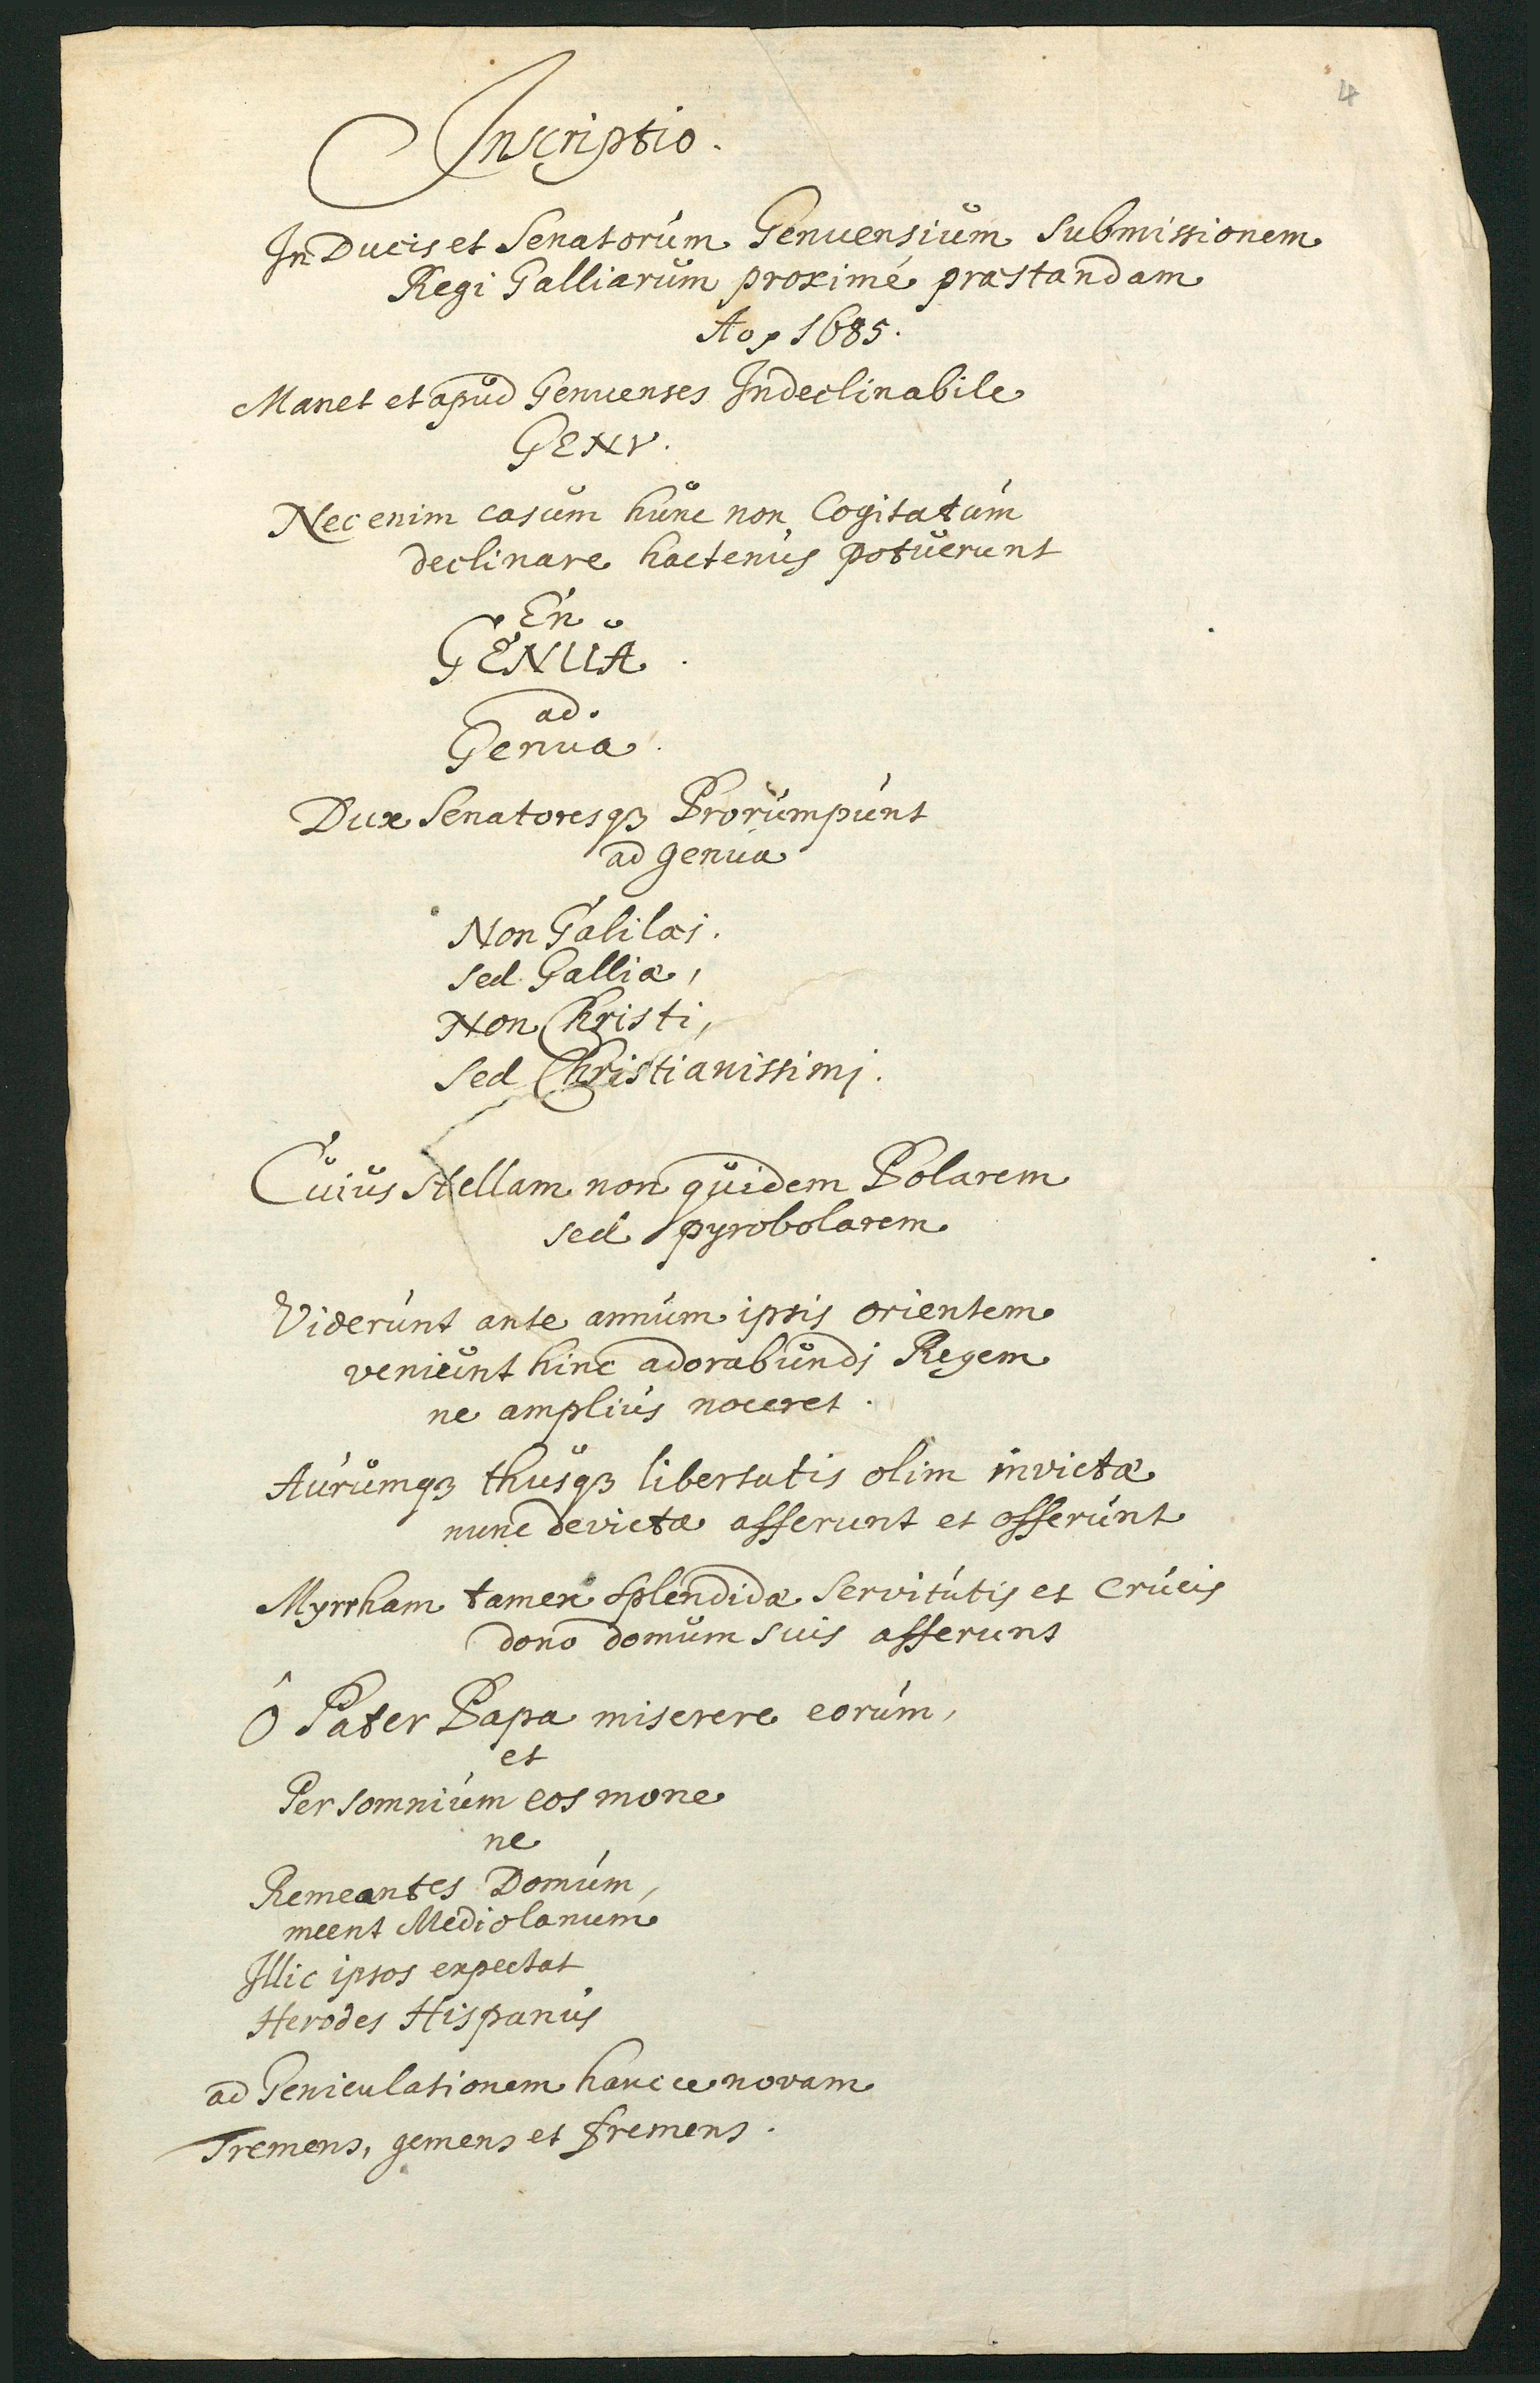 4
Inscriptio.
In Ducis et Senatorum Genuensium submissionem
Regi Galliarum proximé præstandam
Ao, 1685.
Manet et apud Genuenses Indeclinabile
GENV.
Nec enim casum hunc non Cogitatum
declinare hactenus potuerunt
En
GENUA.
ad
Genua.
Dux Senatoresqꝫ Prorumpunt
ad genua
Non Galilæi.
sed Galliæ,
Non Christi,
sed Christianissimi.
Cuius Stellam non quidem Polarem
sed pyrobolarem
Viderunt ante annum ipsis orientem
veniunt hinc adorabundi Regem
ne amplius noceret.
Aurumqꝫ thusqꝫ libertatis olim invictæ
nunc devictæ afferunt et offerunt
Myrrham tamen splendidæ servitutis et crucis
dono domum suis afferunt
Ô Pater Papa miserere eorum,
et
Per somnium eos mone
ne
Remeantes Domum,
meent Mediolanum
Illic ipsos expectat
Herodes Hispanus
ad Geniculationem hancce novam
Tremens, gemens et fremens.